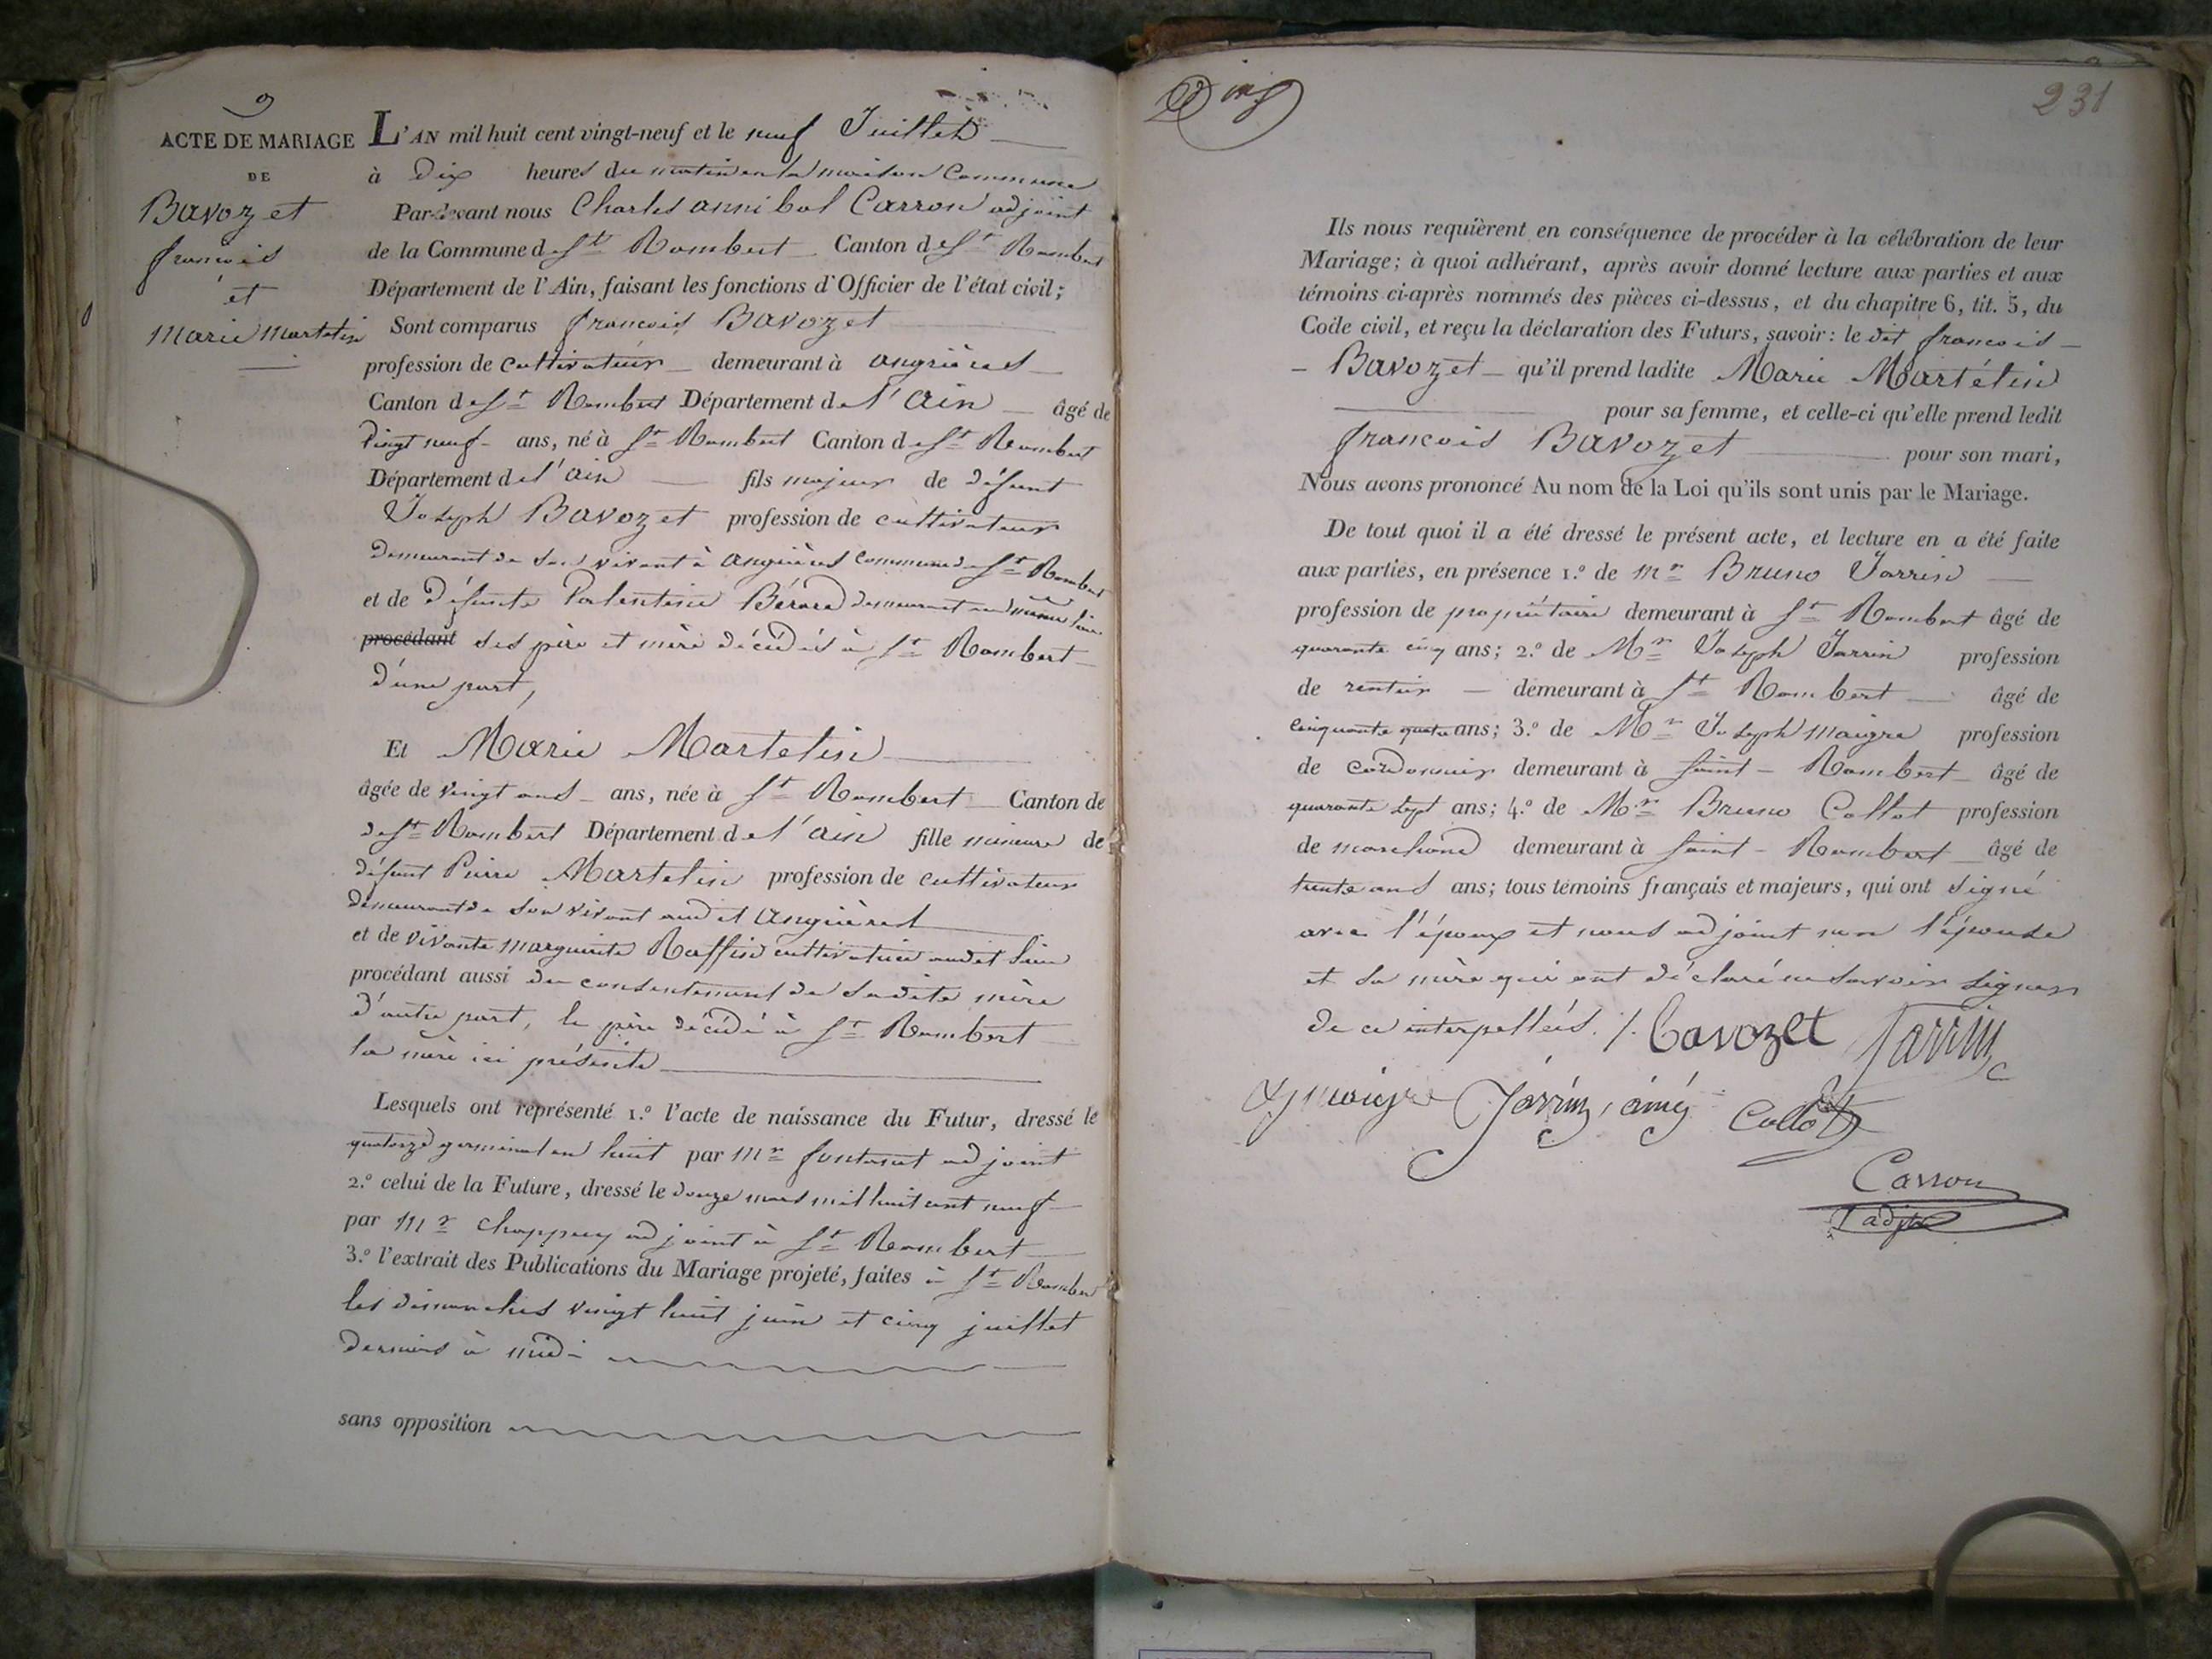 9
ACTE DE MARIAGE
DE
Bavozet
françois
et
Marie Martelin
L'AN mil huit cent vingt-neuf et le neuf Juillet
à dix heures du matin en la maison Commune
Par-devant nous Charles annibal Carron adjoint
de la Commune de St Rambert Canton de St Rambert
Département de l'Ain, faisant les fonctions d'Officier de l'état civil;
Sont comparus françois Bavozet
profession de cultivateur demeurant à angrières
Canton de St Rambert Département de l'Ain âgé de
vingt neuf ans, né à St Rambert Canton de St Rambert
Département de l'ain fils majeur de défunt
Joseph Bavozet profession de cultivateur
demeurant de son vivant à angrières commune de St Rambert
et de défunte Valentine Bérard demeurant au même lieu
procédant ses père et mère décédés à St Rambert
d'une part,
Et Marie Martelin
âgée de vingt ans ans, née à St Rambert Canton de
de St Rambert Département de l'ain fille mineure de
défunt Pierre Martelin profession de cultivateur
demeurant de son vivant audit Angrières
et de vivante Marguerite Raffin cultivatrice audit lieu
procédant aussi du consentement de sadite mère
d'autre part, le père décédé à St Rambert
la mère ici présente
Lesquels ont représenté 1.° l'acte de naissance du Futur, dressé le
quatorze germinal an huit par Mr fontanat adjoint
2.° celui de la Future, dressé le douze mars mil huit cent neuf
par Mr Chappuy adjoint à St Rambert
3.° l'extrait des Publications du Mariage projeté, faites à St Rambert
les dimanches vingt huit juin et cinq juillet
derniers à midi
sans opposition
231
Ils nous requièrent en conséquence de procéder à la célébration de leur
Mariage; à quoi adhérant, après avoir donné lecture aux parties et aux
témoins ci-après nommés des pièces ci-dessus, et du chapitre 6, tit. 5, du
Code civil, et reçu la déclaration des Futurs, savoir: le dit françois
Bavozet qu'il prend ladite Marie Martélin
pour sa femme, et celle-ci qu'elle prend ledit
françois Bavozet pour son mari,
Nous avons prononcé Au nom de la Loi qu'ils sont unis par le Mariage.
De tout quoi il a été dressé le présent acte, et lecture en a été faite
aux parties, en présence 1.° de Mr Bruno Jarrin
profession de propriétaire demeurant à St Rambert âgé de
quarante cinq ans; 2.° de Mr Joseph Jarrin profession
de rentier demeurant à St Rambert âgé de
cinquante quatre ans; 3.° de Mr Joseph Maigre profession
de cordonnier demeurant à Saint-Rambert âgé de
quarante sept ans; 4.° de Mr Bruno Collot profession
de marchand demeurant à Saint-Rambert âgé de
trente ans ans; tous témoins français et majeurs, qui ont signé
avec l'époux et nous adjoint non l'épouse
et sa mère qui ont déclaré ne savoir signer
de ce interpellées. /. Bavozet Jarrin
maigre Jarrin, ainé Collot
Carron
adjt